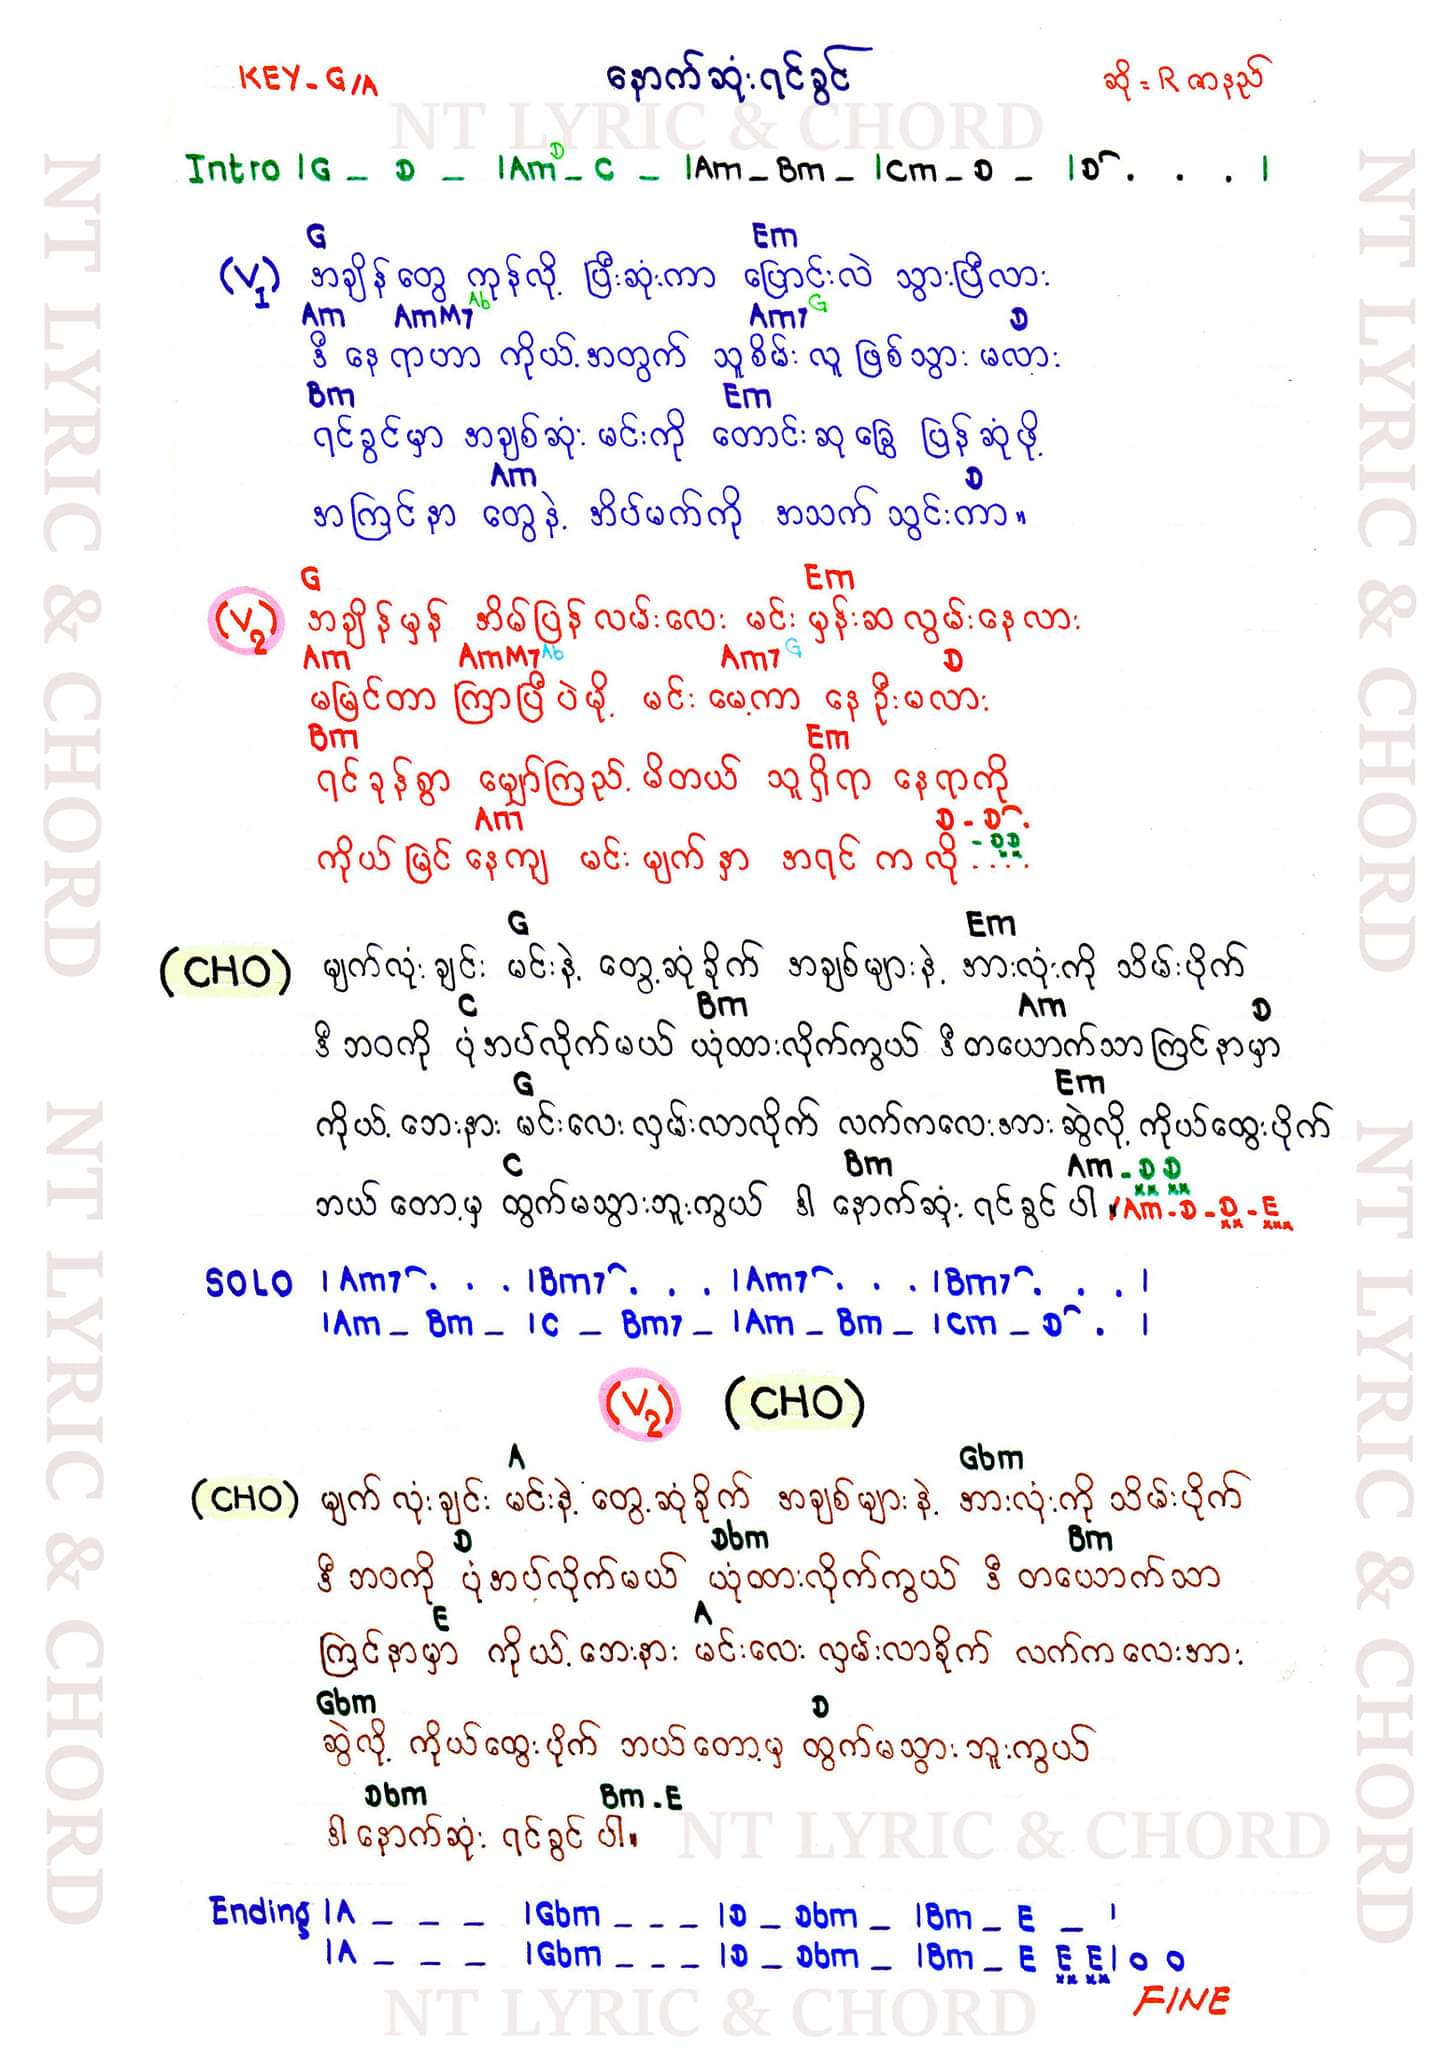 KEY - G/A
နောက်ဆုံးရင်ခွင်
ဆို = R ဇာနည်
NT LYRIC & CHORD
Intro |G _ D _ |Am D _ C _ |Am _ Bm _ |Cm _ D _ |D . . . |
G Em
(V1) အချိန်တွေ ကုန်လို့ ပြီးဆုံးကာ ပြောင်းလဲ သွားပြီလား
Am AmM7 Ab Am7 G D
ဒီ နေရာဟာ ကိုယ့်အတွက် သူစိမ်းလူ ဖြစ်သွား မလား
Bm Em
ရင်ခွင်မှာ အချစ်ဆုံး မင်းကို တောင်းဆုခြွေ ပြန်ဆုံဖို့
Am D
အကြင်နာ တွေနဲ့ အိပ်မက်ကို အသက်သွင်းကာ။
G Em
(V2) အချိန်မှန် အိမ်ပြန်လမ်းလေး မင်း မှန်းဆ လွမ်းနေလား
Am AmM7 Ab Am7 G D
မမြင်တာ ကြာပြီ ပဲမို့ မင်း မေ့ကာ နေဦးမလား
Bm Em
ရင်ခုန်စွာ မျှော်ကြည့်မိတယ် သူရှိရာ နေရာကို
Am D - D .
ကိုယ်မြင်နေကျ မင်းမျက်နှာ အရင် ကလို - D D . . . .
G Em
(CHO) မျက်လုံးချင်း မင်းနဲ့ တွေ့ဆုံခိုက် အချစ်များနဲ့ အားလုံးကို သိမ်းပိုက်
C Bm Am D
ဒီဘဝကို ပုံအပ်လိုက်မယ် ယုံထားလိုက်ကွယ် ဒီတယောက်သာကြင်နာမှာ
G Em
ကိုယ့်ဘေးနား မင်းလေးလှမ်းလာလိုက် လက်ကလေးအားဆွဲလို့ ကိုယ်ထွေးပိုက်
C Bm Am - D D
ဘယ်တော့မှ ထွက်မသွားဘူးကွယ် ဒါ နောက်ဆုံးရင်ခွင်ပါ။ / Am - D - D - E
SOLO |Am7 . . . |Bm7 . . . |Am7 . . . |Bm7 . . . |
|Am _ Bm _ |C _ Bm7 _ |Am _ Bm _ |Cm _ D . |
(V2) (CHO)
A Gbm
(CHO) မျက်လုံးချင်း မင်းနဲ့ တွေ့ဆုံခိုက် အချစ်များနဲ့ အားလုံးကို သိမ်းပိုက်
D Dbm Bm
ဒီဘဝကို ပုံအပ်လိုက်မယ် ယုံထားလိုက်ကွယ် ဒီ တယောက်သာ
E A
ကြင်နာမှာ ကိုယ့်ဘေးနား မင်းလေး လှမ်းလာခိုက် လက်ကလေးအား
Gbm D
ဆွဲလို့ ကိုယ်ထွေးပိုက် ဘယ်တော့မှ ထွက်မသွားဘူးကွယ်
Dbm Bm - E
ဒါနောက်ဆုံး ရင်ခွင်ပါ။
NT LYRIC & CHORD
Ending |A _ _ _ |Gbm _ _ _ |D _ Dbm _ |Bm _ E _ |
|A _ _ _ |Gbm _ _ _ |D _ Dbm _ |Bm _ E E E | 0 0
FINE
NT LYRIC & CHORD
NT LYRIC & CHORD
NT LYRIC & CHORD
NT LYRIC & CHORD
NT LYRIC & CHORD